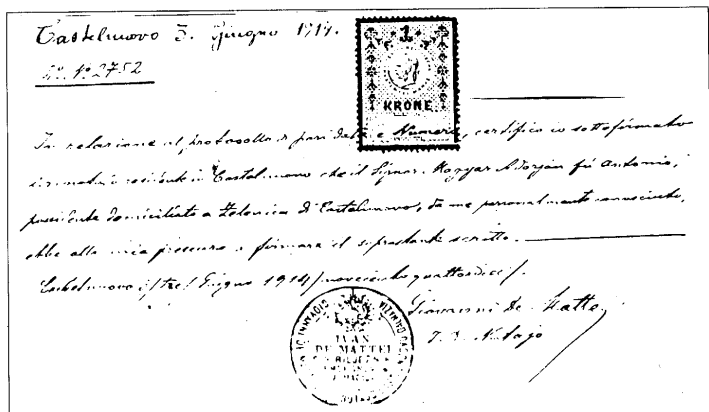 Castelnuovo 3. Giugno 1914.
Nº 2752
1
KRONE
In relazione al protocollo a pari data e Numero, certifico io sottofirmato
residente in Castelnuovo che il Signor Magyar Adorján fù Antonio,
possidente domiciliato a Zelenica di Castelnuovo, da me personalmente conosciuto,
ebbe alla mia presenza a firmare il soprastante scritto.
Castelnuovo i/tre/ Giugno 1914/novecento quattordici/.
Giovanni de Mattei
IVAN
DE MATTEI